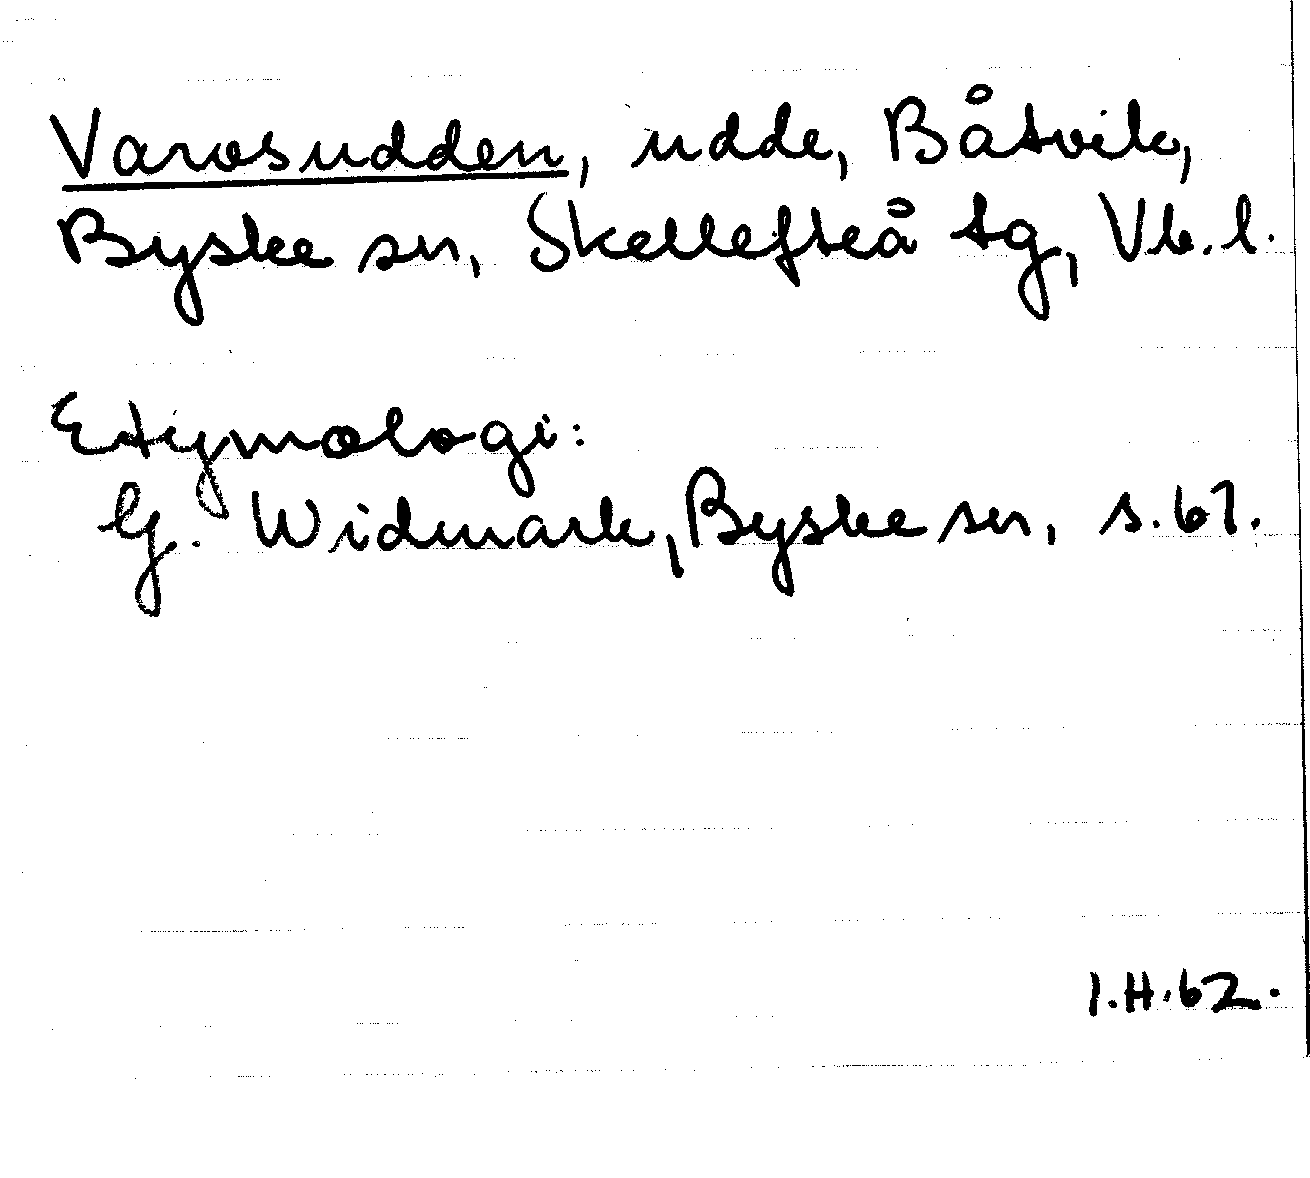 Varosudden, udde, Båtvik,
Byske sn, Skellefteå tg, Vb. l.
Etymologi:
G. Widmark, Byske sn, s. 61.
I.H.62.